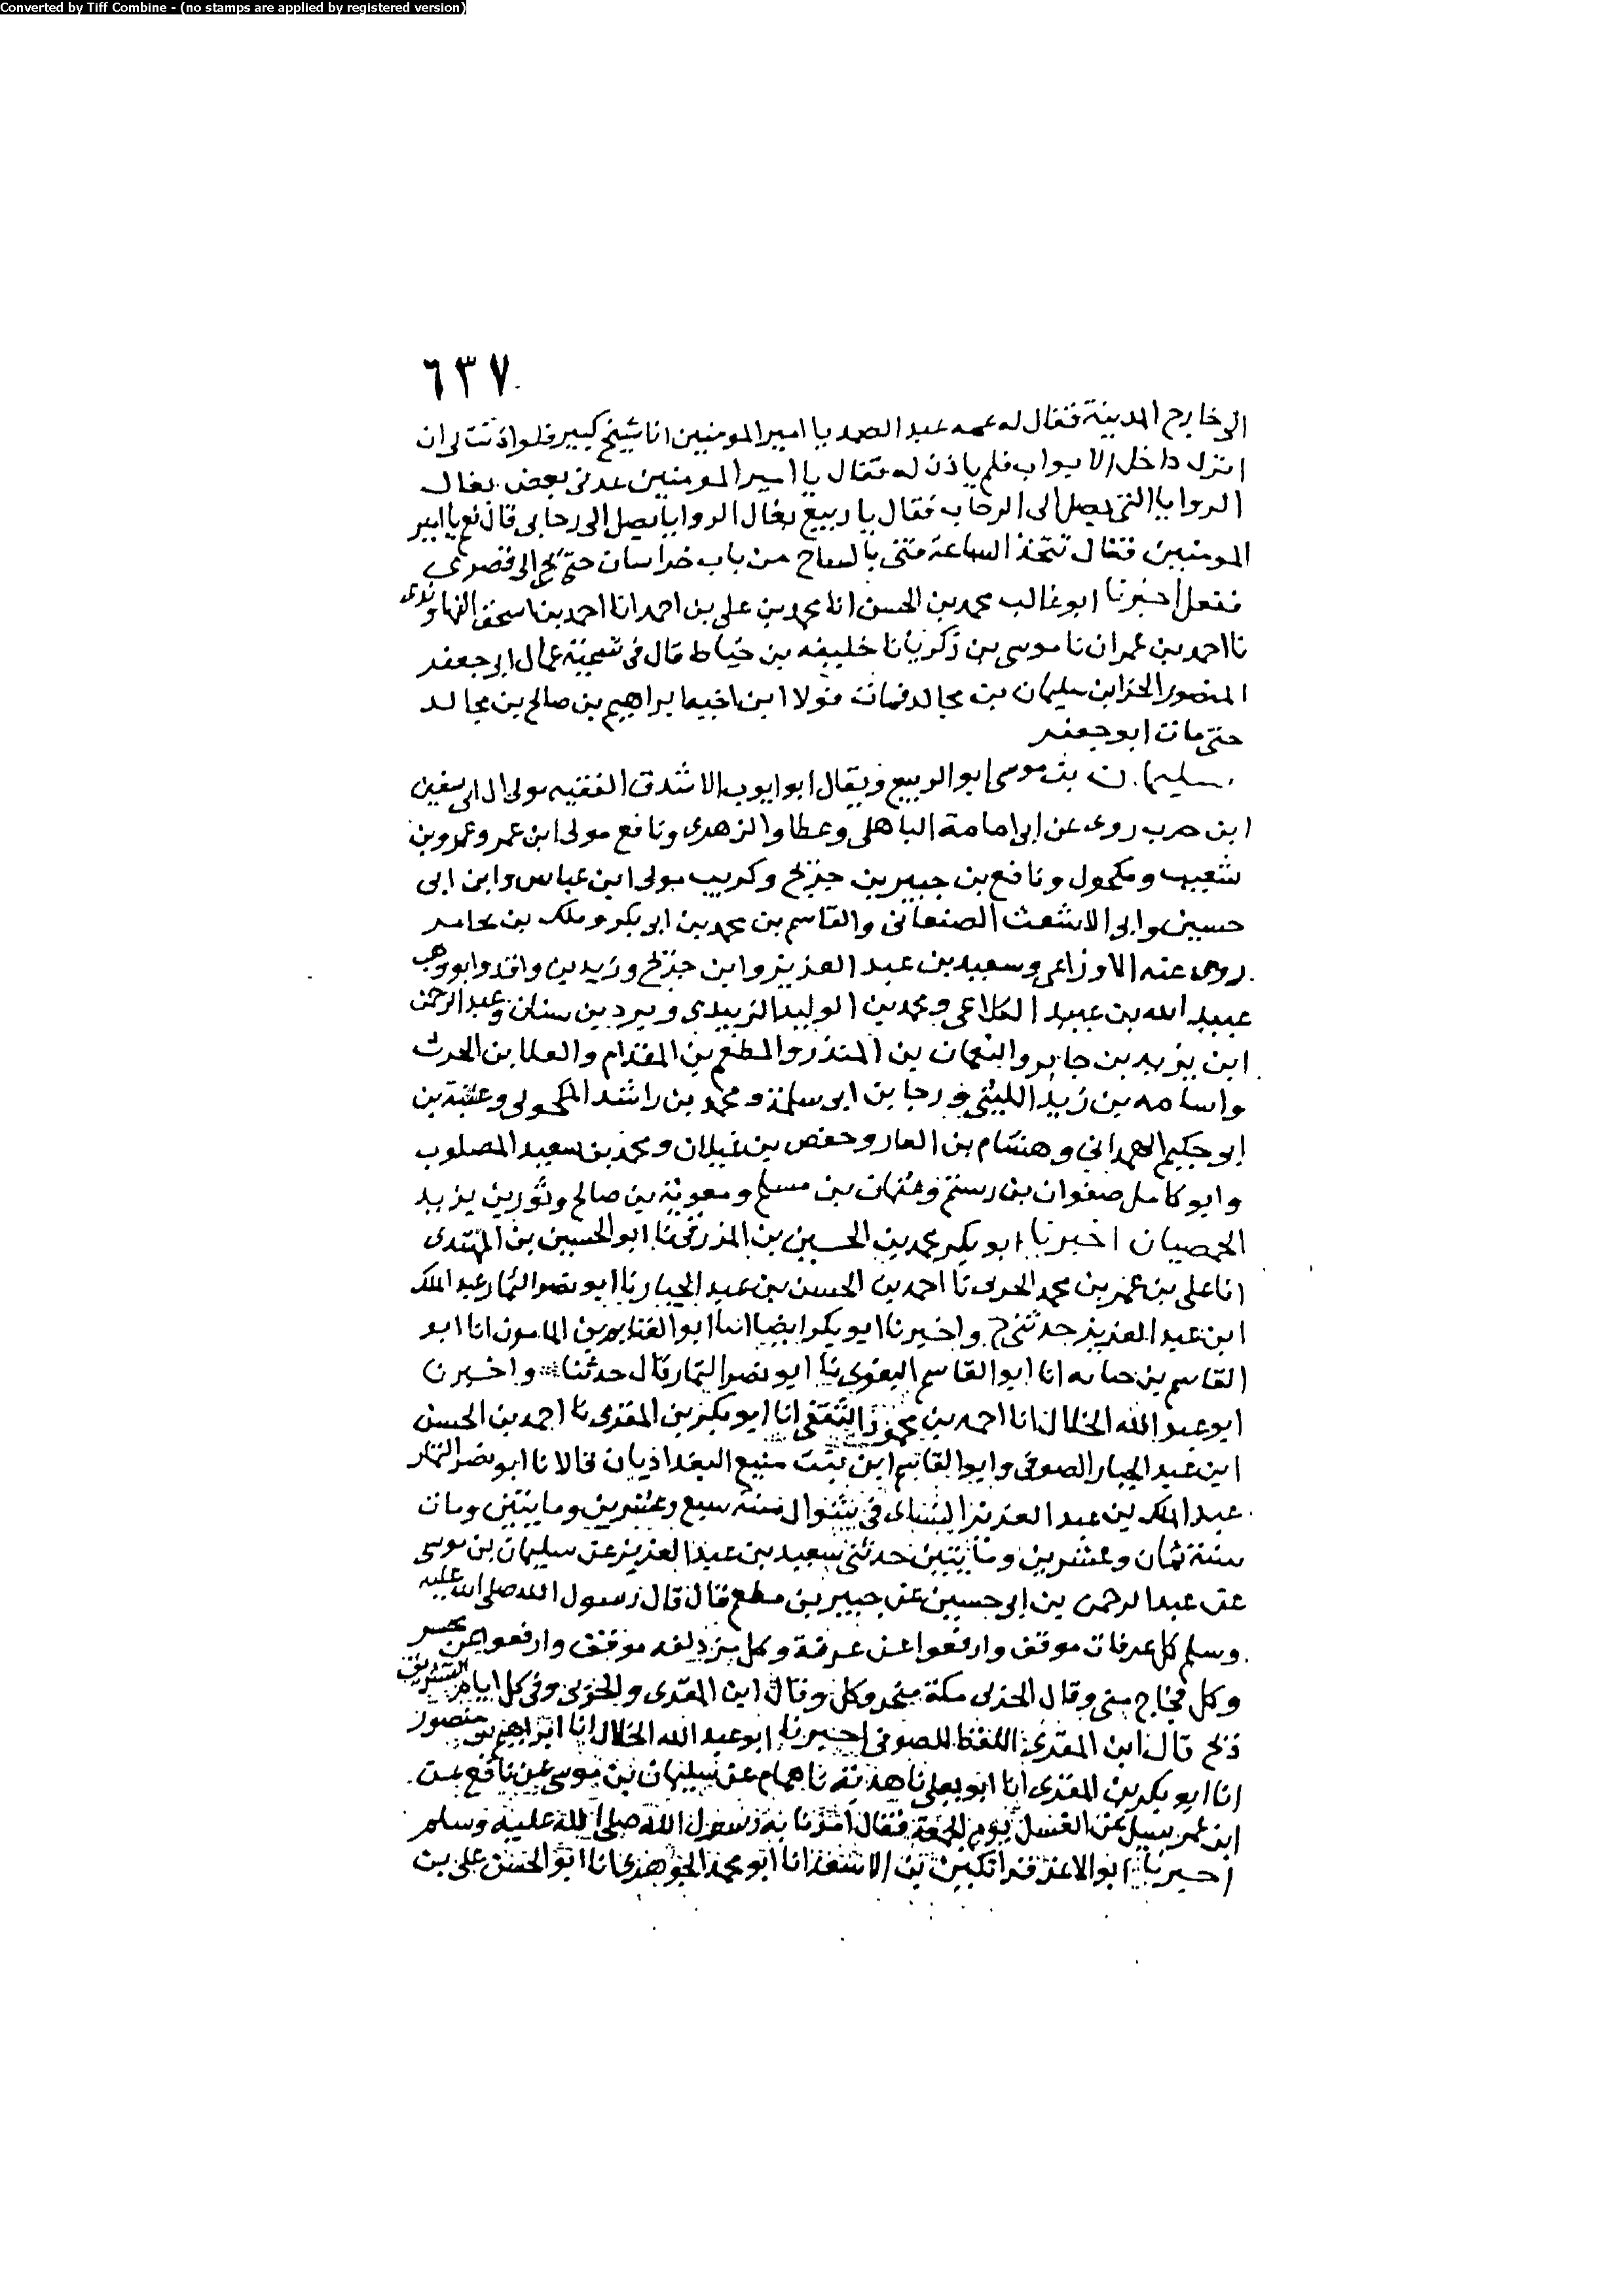 Converted by Tiff Combine - (no stamps are applied by registered version)
٦٣٧
الى خارج المدينة فقال له عمه عبد الصمد يا امير المومنين انا شيخ كبير فلو اذنت لى ان
انزل داخل الابواب فلم ياذن له فقال يا امير المومنين عدنى بعض بغال
الروايا التى يصل الى الرحاب فقال يا ربيع بغال الروايا يصل الى رحابى قال نعم يا امير
المومنين فقال تتخذ الساعة قنى بالساج من باب خراسان حتى تجى الى قصرى
ففعل اخبرنا ابو غالب محمد بن الحسن انا محمد بن على بن احمد انا احمد بن اسحق النهاوندى
نا احمد بن عمران نا موسى بن زكريا نا خليفه بن خياط قال فى تسمية عمال ابى جعفر
المنصور الخزاين سليمان بن مجالد فمات فولا ابن اخيه ابراهيم بن صالح بن مجالد
حتى مات ابو جعفر
سليمان بن موسى ابو الربيع ويقال ابو ايوب الاشدق الفقيه مولى ال ابى سفين
ابن حرب روى عن ابى امامة الباهلى وعطا والزهرى ونافع مولى ابن عمر وعمرو بن
شعيب ومكحول ونافع بن جبير بن جريج وكريب مولى ابن عباس وابن ابى
حسين وابى الاشعث الصنعانى والقاسم بن محمد بن ابى بكر وملك بن يخامر
روى عنه الاوزاعى وسعيد بن عبد العزيز وابن جريج وزيد بن واقد وابو وهب
عبيد الله بن عبيد الكلاعى ومحمد بن الوليد الزبيدى وبرد بن سنان وعبد الرحمن
ابن يزيد بن جابر والنعمان بن المنذر والمطعم بن المقدام والعلا بن الحرث
واسامه بن زيد الليثى ورجا بن ابى سلمة ومحمد بن راشد المكحولى وعتبة بن
ابى حكيم الهمدانى وهشام بن الغاز وحفص بن غيلان ومحمد بن سعيد المصلوب
وابو كامل صفوان بن رستم وعثمان بن مسلم ومعوية بن صالح وثور بن يزيد
الحمصيان اخبرنا ابو بكر محمد بن الحسين بن المزرفى نا ابو الحسين بن المهتدى
انا على بن عمر بن محمد الحربى نا احمد بن الحسن بن عبد الجبار نا ابو نصر التمار عبد الملك
ابن عبد العزيز حدثنى ح واخبرنا ابو بكر ايضا انا ابو الغنايم بن المامون انا ابو
القاسم بن حبابه انا ابو القاسم البغوى نا ابو نصر التمار قال حدثنا واخبرنا
ابو عبد الله الخلال انا احمد بن محمود الثقفى انا ابو بكر بن المقرى نا احمد بن الحسن
ابن عبد الجبار الصوفى وابو القاسم ابن بنت منيع البغداديان قالا نا ابو نصر التمار
عبد الملك بن عبد العزيز النسائى فى شوال سنة سبع وعشرين ومايتين ومات
سنة ثمان وعشرين ومايتين حدثنى سعيد بن عبد العزيز عن سليمان بن موسى
عن عبد الرحمن بن ابى حسين عن جبير بن مطعم قال قال رسول الله صلى الله عليه
وسلم كل عرفات موقف وارفعوا عن عرفة وكل مزدلفه موقف وارفعوا عن محسر
وكل فجاج منى وقال الحربى مكة منحر وكل وقال ابن المقرى والحربى وفى كل ايام التشريق
ذبح قال ابن المقرى اللفظ للصوفى اخبرنا ابو عبد الله الخلال انا ابراهيم بن منصور
انا ابو بكر بن المقرى انا ابو يعلى نا هدبة نا همام عن سليمان بن موسى عن نافع عن
ابن عمر سيل عن الغسل يوم الجمعة فقال امرنا به رسول الله صلى الله عليه وسلم
اخبرنا ابو الاعز قراتكين بن الاسعد انا ابو محمد الجوهرى انا ابو الحسن على بن